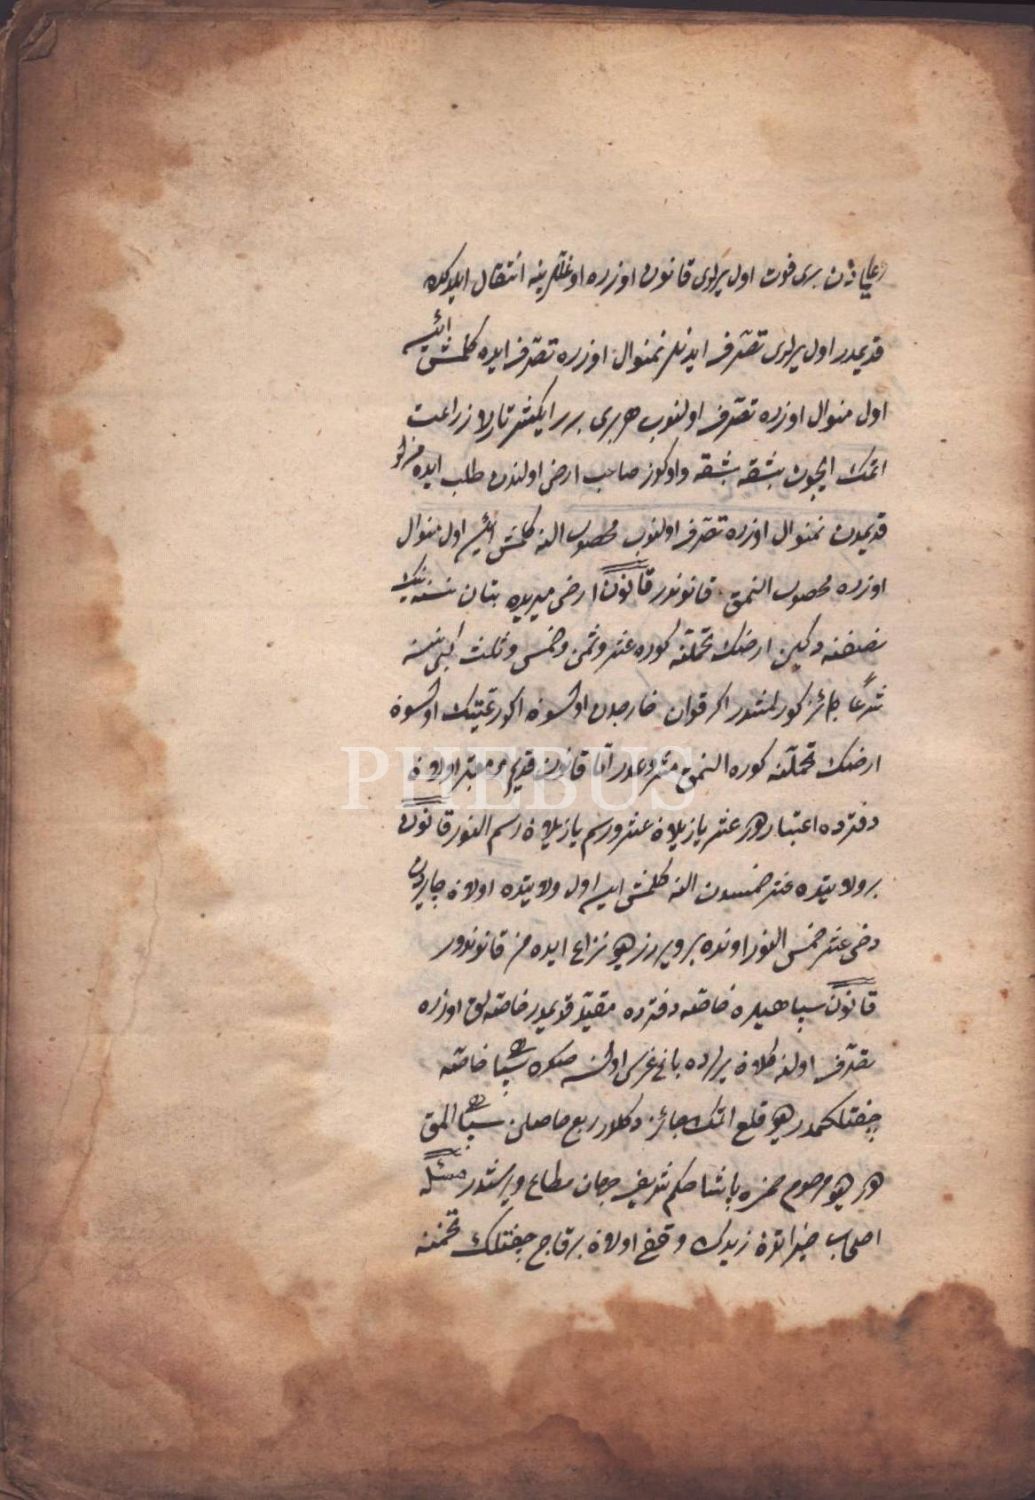 رعایادن بری فوت اول یرلری قانون اوزره اوغللرینه انتقال ایلدکده
قدیمدر اول یرلری تصرف ایدنلر نه منوال اوزره تصرف ایده کلمش ایسه
اول منوال اوزره تصرف اولنوب هر بری بر ایکیشر تارلا زراعت
اتمک ایچون بشقه بشقه واوکوز صاحب ارض اولندن طلب ایده مزلر
قدیمدن نه منوال اوزره تصرف اولنوب محصول النه کلمش ایسه اول منوال
اوزره محصول النمق قانوندر قانون ارض میریده بتان نسنه نک
نصفنه دکین ارضک تحملنه کوره عشر وثمن وخمس وثلث
شرعا جائز کورلمشدر اکر قوان خارجدن اولسون اکر رعیتک اولسون
ارضک تحملنه کوره النمق مشروعدر اما قانون قدیم معتبر اولان
دفترده اعتبار در عشر یازیلان عشر ورسم یازیلان رسم النور قانون
بر ولایتده عشر خمسدن النه کلمش ایسه اول ولایتده اولان
دخی عشر خمس النور اونده بر ویررز دیو نزاع ایده مز قانوندر
قانون سپاهیلره خاصه دفترده مقید قدیمدر خاصه لق اوزره
تصرف اولنه کلان یرلرده باغ غرس اولنسه صکره سپاهی خاصه
چفتلکمدر دیو قلع اتمک جائز دکلدر ربع حاصلن سپاهی المق
در دیو مرحوم حمزه پاشا حکم شریف جهان مطاع ویرلمشدر مسئله
اصحاب خیراتدن زیدک وقفی اولان بر قاچ چفتلک تخمنه
PHEBUS